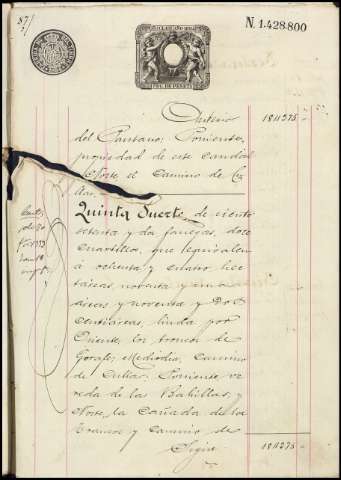 87
N. 1.428.800
Anterior 1811375
del Pantano; Poniente,
propiedad de este caudal
Norte el camino de
Quinta Suerte de ciento
setenta y dos fanegas, doce
cuartillos, que equivalen
á ochenta y cuatro hec
táreas, noventa y
áreas y noventa y dos
centiáreas, linda por
Oriente, los troncos de
Gorafe; Mediodia, camino
de Cullar. Poniente, ve
reda de las Balsillas, y
Norte, la Cañada de los
Trancos y camino de
Sigue 1811375